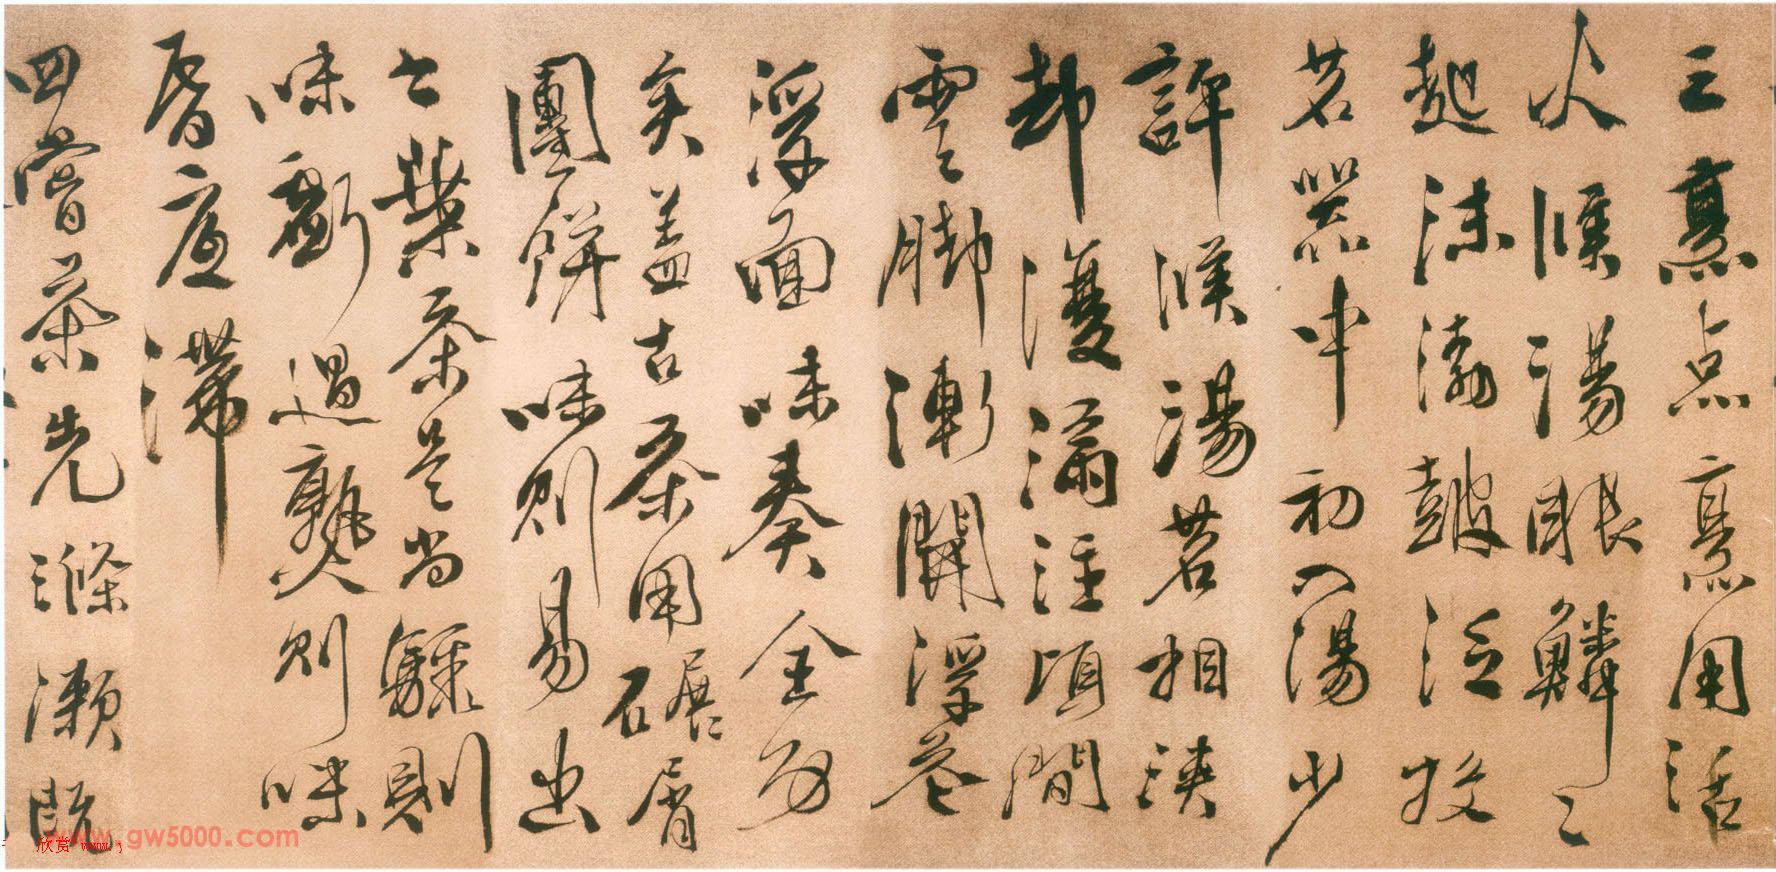 三烹点烹用活
火候湯眼鱗〻
起沫渤鼓泛投
茗器中初入湯少
許候湯茗相浹
却復滿注頃間
雲脚漸開浮花
浮面味奏全功
矣盖古茶用碾屑
團餅味則易出
今葉茶是尚驟則
味虧過熟則味
昏底滯
四嘗茶先滌漱既
www.gw5000.com
欣赏 www.